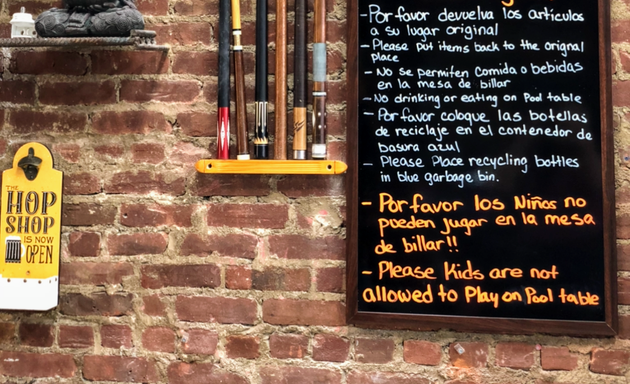 -Por favor devuelva los artículos
a su lugar original
- Please put items back to the orignal
place
- No se permiten comida o bebidas
en la mesa de billar
- No drinking or eating on Pool table
- Por favor coloque las botellas
de reciclaje en el contenedor de
basura azul
- Please Place recycling bottles
in blue garbage bin.
- Por favor los Niños no
pueden jugar en la mesa
de billar!!
- Please Kids are not
allowed to Play on Pool table
THE
HOP
SHOP
IS NOW
OPEN